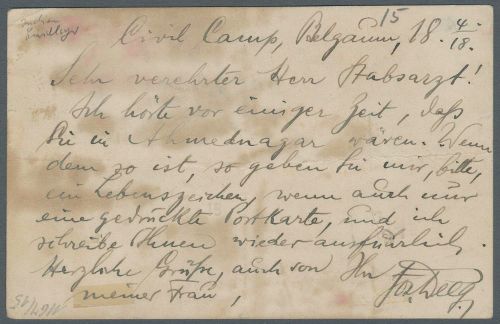 15
Civil Camp, Belgaum, 18. 4/18.
Sehr verehrter Herr Stabsarzt!
Ich hörte vor einiger Zeit, daß
Sie in Ahmednagar wären. Wenn
dem so ist, so geben Sie mir, bitte,
ein Lebenszeichen, wenn auch nur
eine gedruckte Postkarte, und ich
schreibe Ihnen wieder ausführlich.
Herzliche Grüße, auch von Ihr
meiner Frau,